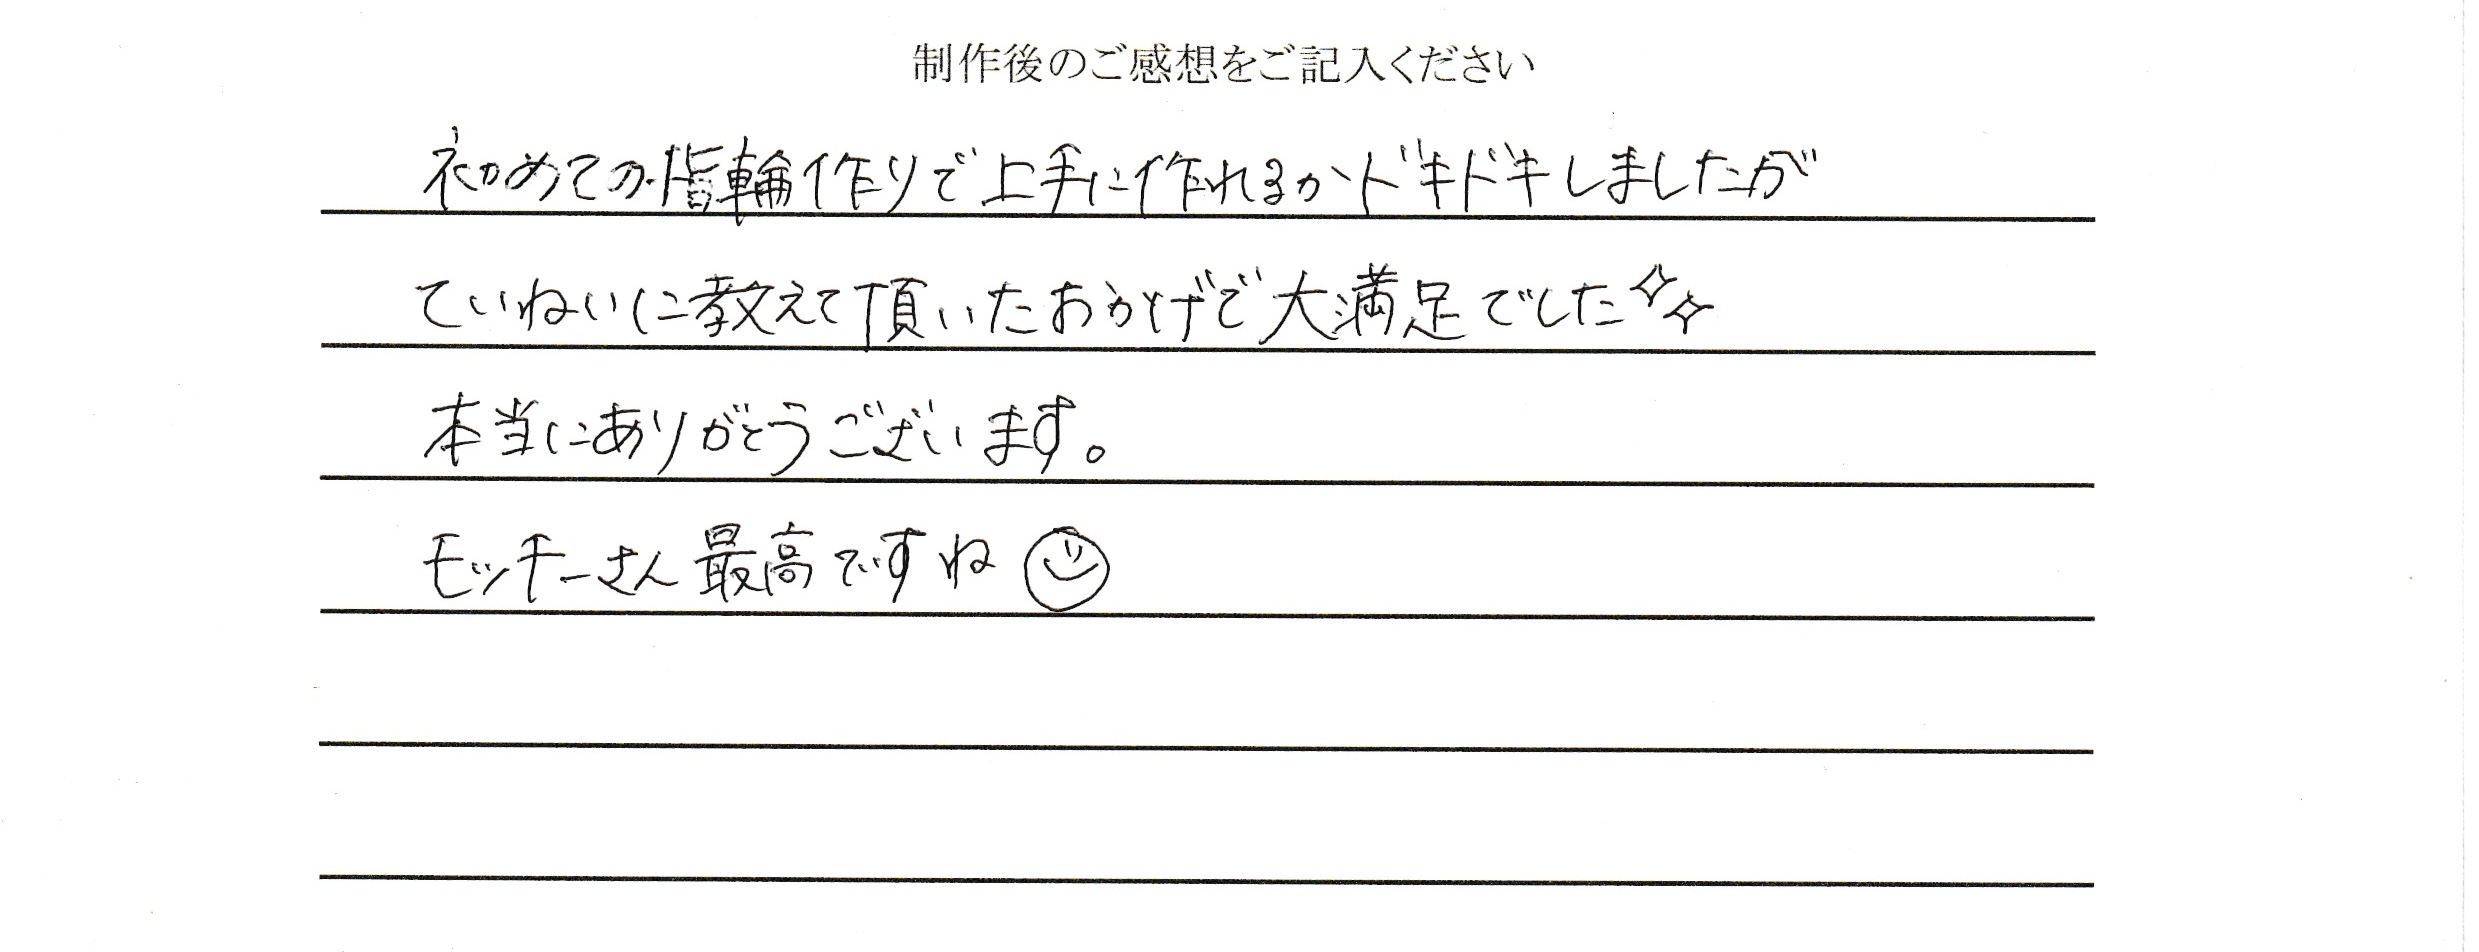 制作後のご感想をご記入ください
初めての指輪作りで上手に作れるかドキドキしましたが
ていねいに教えて頂いたおかげで大満足でした
本当にありがとうございます。
モッチーさん最高ですね